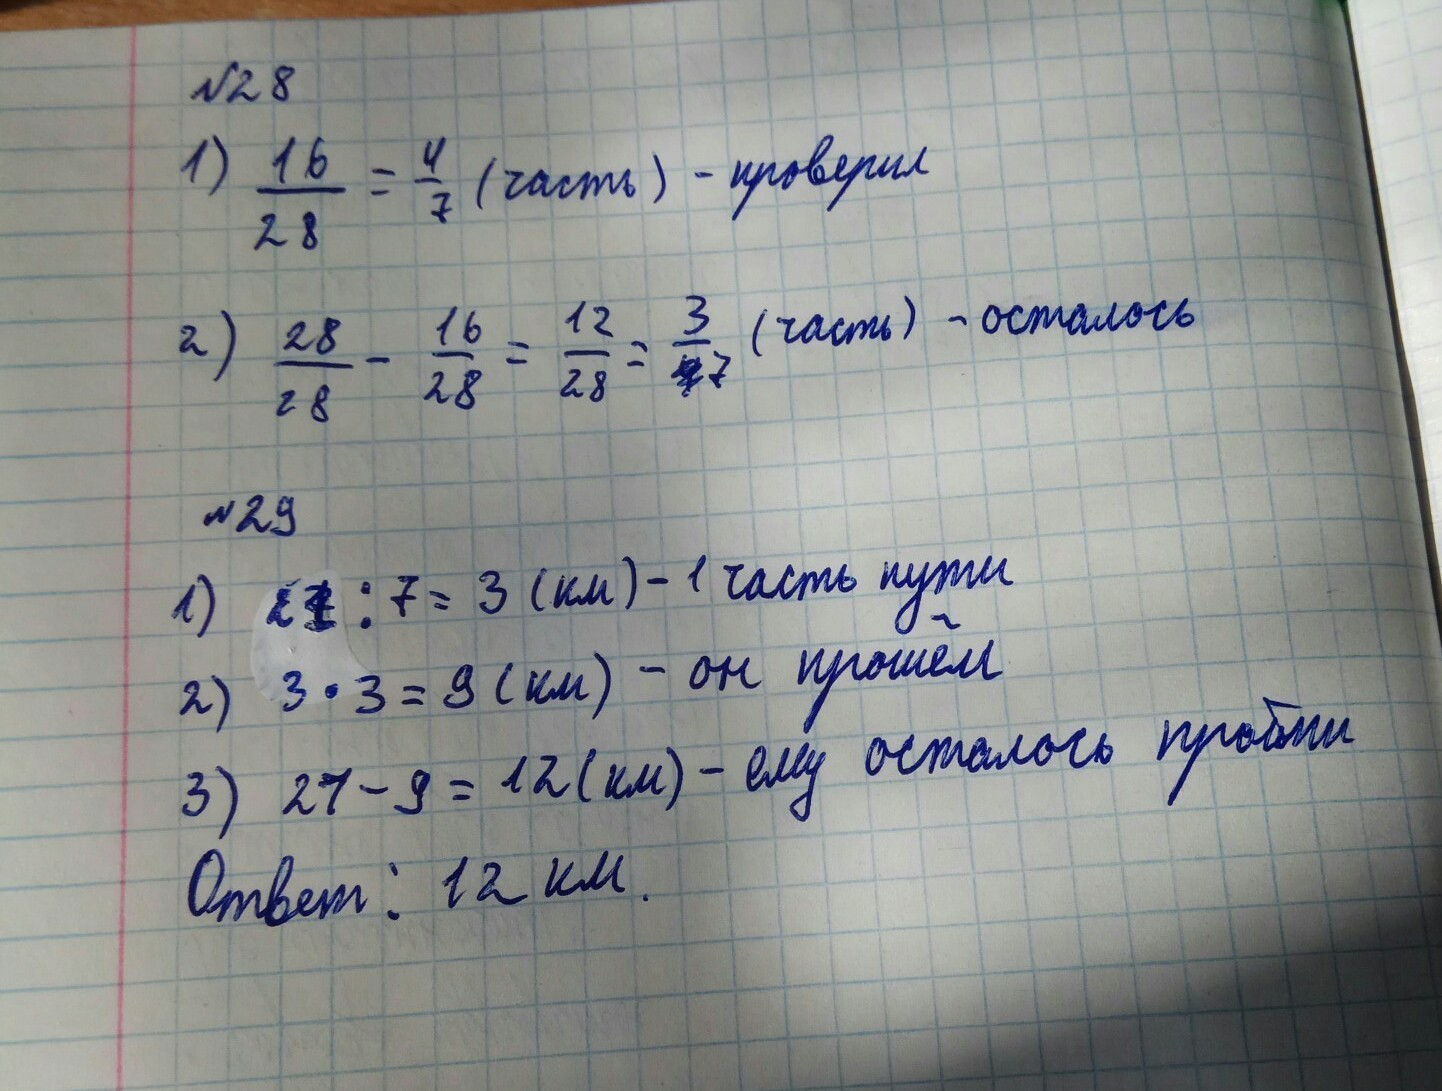 №28
1) 16/28 = 4/7 (часть) - проверил
2) 28/28 - 16/28 = 12/28 = 3/7 (часть) - осталось
№29
1) 21 : 7 = 3 (км) - 1 часть пути
2) 3 · 3 = 9 (км) - он прошёл
3) 21 - 9 = 12 (км) - ему осталось пройти
Ответ: 12 км.